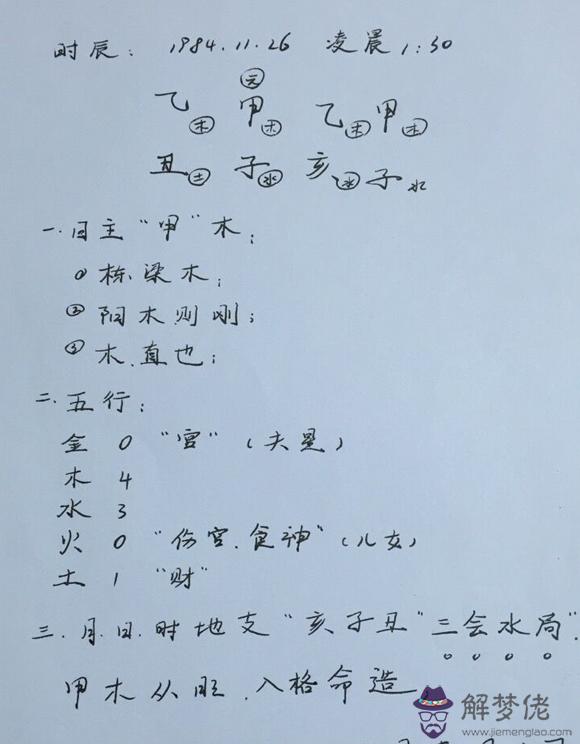 时辰： 1984.11.26 凌晨1:30
元
乙木 甲木 乙木 甲木
丑土 子水 亥水 子水
一.日主“甲”木；
① 栋梁木；
② 阳木则刚；
③ 木.直也；
二.五行；
金 0 “官”（夫星）
木 4
水 3
火 0 “伤官.食神”（儿女）
土 1 “财”
三.月.日.时地支“亥子丑”三会水局”.
甲木从旺.入格命造
解梦佬
www.jiemenglao.com